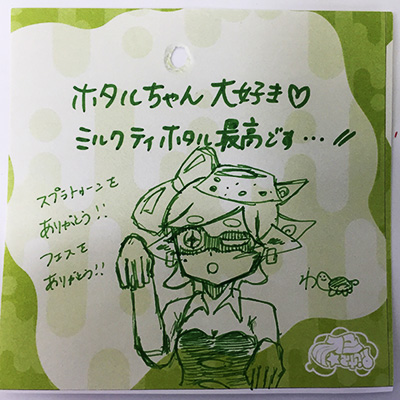 ホタルちゃん大好き♡
ミルクティホタル最高です…〃
スプラトゥーンを
ありがとう!!
フェスを
ありがとう!!